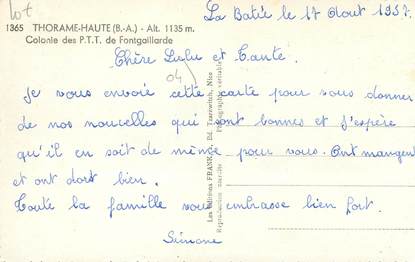 lot
La Batie le 17 Aout 1957.
1365 THORAME-HAUTE (B.-A.) - Alt. 1135 m.
Colonie des P.T.T. de Fontgaillarde
Chère Lulu et Tante.
04
Je vous envoie cette carte pour vous donner
de nos nouvelles qui sont bonnes et j'espère
qu'il en soit de même pour vous. Ont mangent
et ont dort bien.
Toute la famille vous embrasse bien fort.
Simone
Les Editions FRANK, Ed. Nice
Photographie véritable
Reproduction interdite